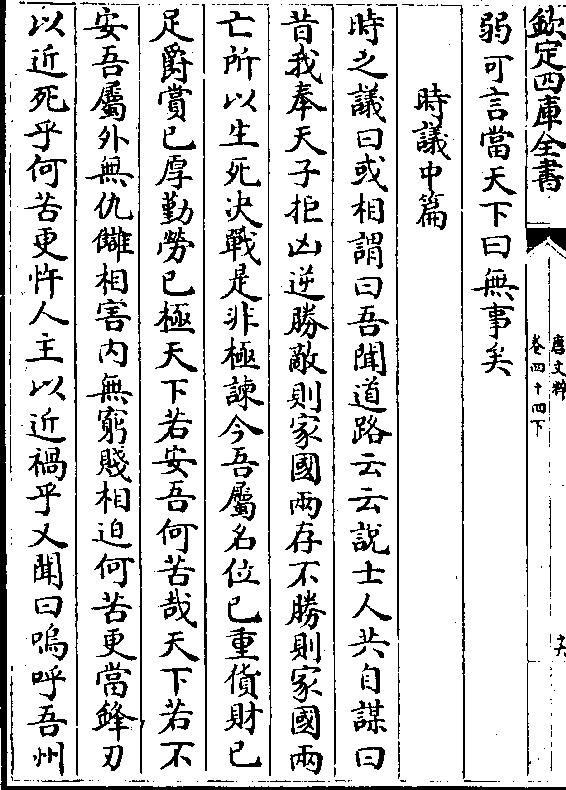 欽定四庫全書
唐文粹
卷四十四下
弱可言當天下曰無事矣
時議中篇
時之議曰或相謂曰吾聞道路云云說士人共自謀曰
昔我奉天子拒凶逆勝敵則家國兩存不勝則家國兩
亡所以生死决戰是非極諫今吾屬名位已重貨財已
足爵賞已厚勤勞已極天下若安吾何苦哉天下若不
安吾屬外無仇讎相害内無窮賤相迫何苦更當鋒刃
以近死乎何苦更忤人主以近禍乎又聞曰嗚呼吾州